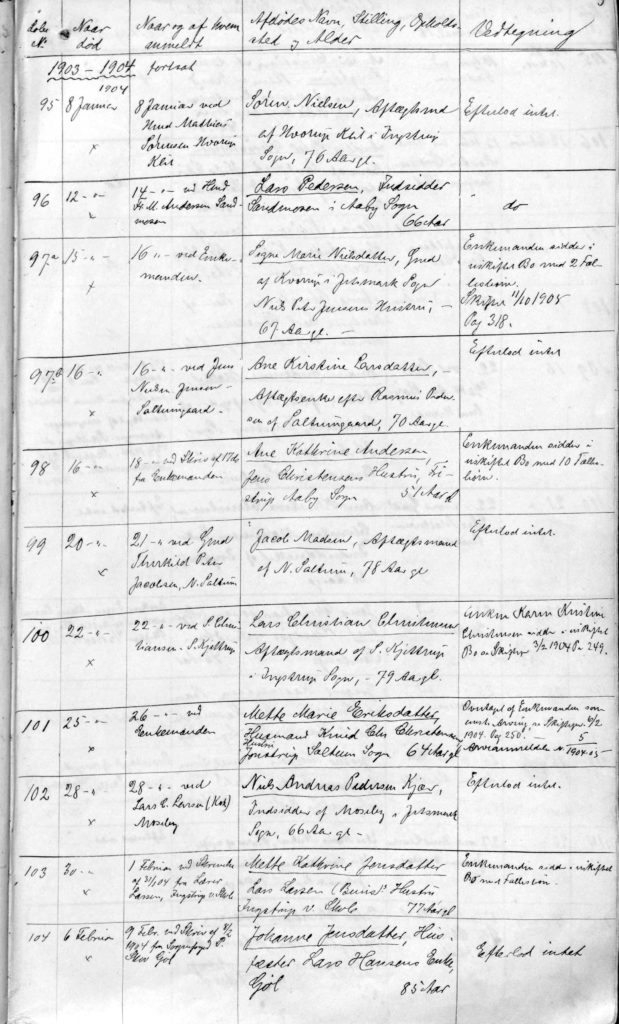 Løbe N. Naar død Naar og af hvem anmeldt Afdødes Navn, Stilling, Opholdssted og Alder Vedtegning
1903-1904 fortsat
1904
95 8 Januar 8 Januar ved Søren Nielsen, Aftægtsmd Efterlod intet.
Hmd Mathias af Hvorup Klit i Ingstrup
x Sørensen Hvorup Sogn, 76 Aar gl.
Klit
96 12 -"- 14 -"- ved Hmd Lars Pedersen, Indsidder " do
x Fr. M. Andersen Sand- Sandmosen i Aaby Sogn
mosen 66 Aar
97a 15 -"- 16 -"- ved Enke- Marie Nielsdatter, Gmd Enkemanden sidder i
manden. af i Jetsmark Sogn uskiftet Bo med 2 Fæl-
x Niels Peter Jensens Hustru, - lesbørn.
67 Aar gl. - Skifter 11/10 1905
Pag 318.
97b 16 -"- 16 -"- ved Jens Ane Kirstine Larsdatter, - Efterlod intet
Nielsen Jensen - Aftægtsenke efter Rasmus
x Saltumgaard. - sen af Saltumgaard, 70 Aar gl.
98 16 -"- 18 -"- ved Skriv. af 17de Ane Kathrine Andersen Enkemanden sidder i
x fra Enkemanden Jens Christensens Hustru, uskiftet Bo med 10 Fælles-
Aaby Sogn 51 Aar gl børn.
99 20 -"- 21 -"- ved Gmd Jacob Madsen, Aftægtsmand Efterlod intet.
x Thorkild Peter af N. Saltum, 78 Aar gl
Jacobsen, N. Saltum
100 22 -"- 22 -"- ved S. Chri- Lars Christian Christensen Enken Karen Kirstine
x stiansen - S. Kjettrup Aftægtsmand af S. Kjettrup Christensen sidder i uskiftet
i Ingstrup Sogn, - 79 Aar gl. Bo se Skifter 3/2 1904 Pa 249.
101 25 -"- 26 -"- ved Mette Marie Eriksdatter, Overtaget af Enkemanden som
x Enkemanden Husmand Knud Chr. Christensen Arving se Skiftepr. 6/2
Hustru 1904. Pag 250! -
Jonstrup Saltum Sogn 64 Aar gl Arveanmeldelse N 5/1904-05 -
102 28 -"- 28 -"- ved Niels Andreas Pedersen Kjær, Efterlod intet.
x Lars C. Larsen (Kok) Indsidder af Moseby i Jetsmark
Moseby Sogn, 66 Aar gl -
103 30 -"- 1 Februar ved Skrivelse Mette Kathrine Jensdatter Enkemanden sidd. i uskiftet
x af 31/1 04 fra Lærer Lars Larsen Hustru Bo med Fællesbørn.
Larsen, Ingstrup v. Skole Ingstrup v. Skole 77 Aar gl
104 6 Februar 9 Febr. ved Skriv af 8/2 Johanne Jensdatter, Hus- Efterlod intet
x 1904 fra Sognefoged P. fæster Lars Hansens Enke,
Gjøl Gjøl 85 Aar